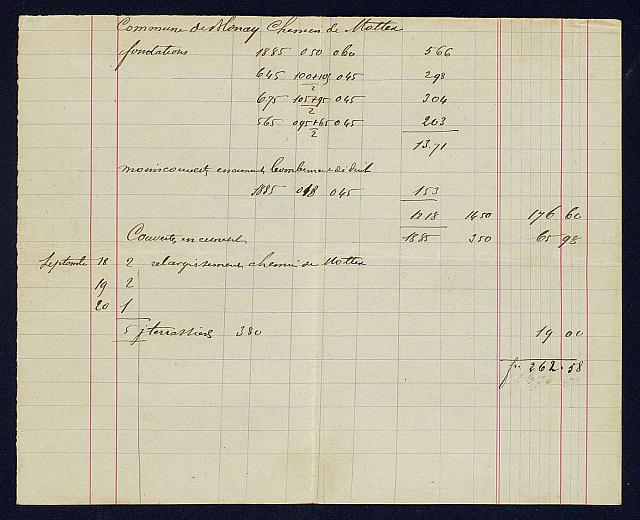 Commune de Blonay Chemin de Mottex
fondations 1885 050 060 566
645 100+105/2 045 298
675 105+95/2 045 304
565 095+65/2 045 203
13,71
moins couverte en ciment bombement déduit
1885 018 045 153
1218 1450 176 60
Couverte en ciment 1885 350 65 98
Septembre 18 2 relargissement chemin de Mottex
19 2
20 1
5 j terrassiers 380 19 00
fr. 262.58